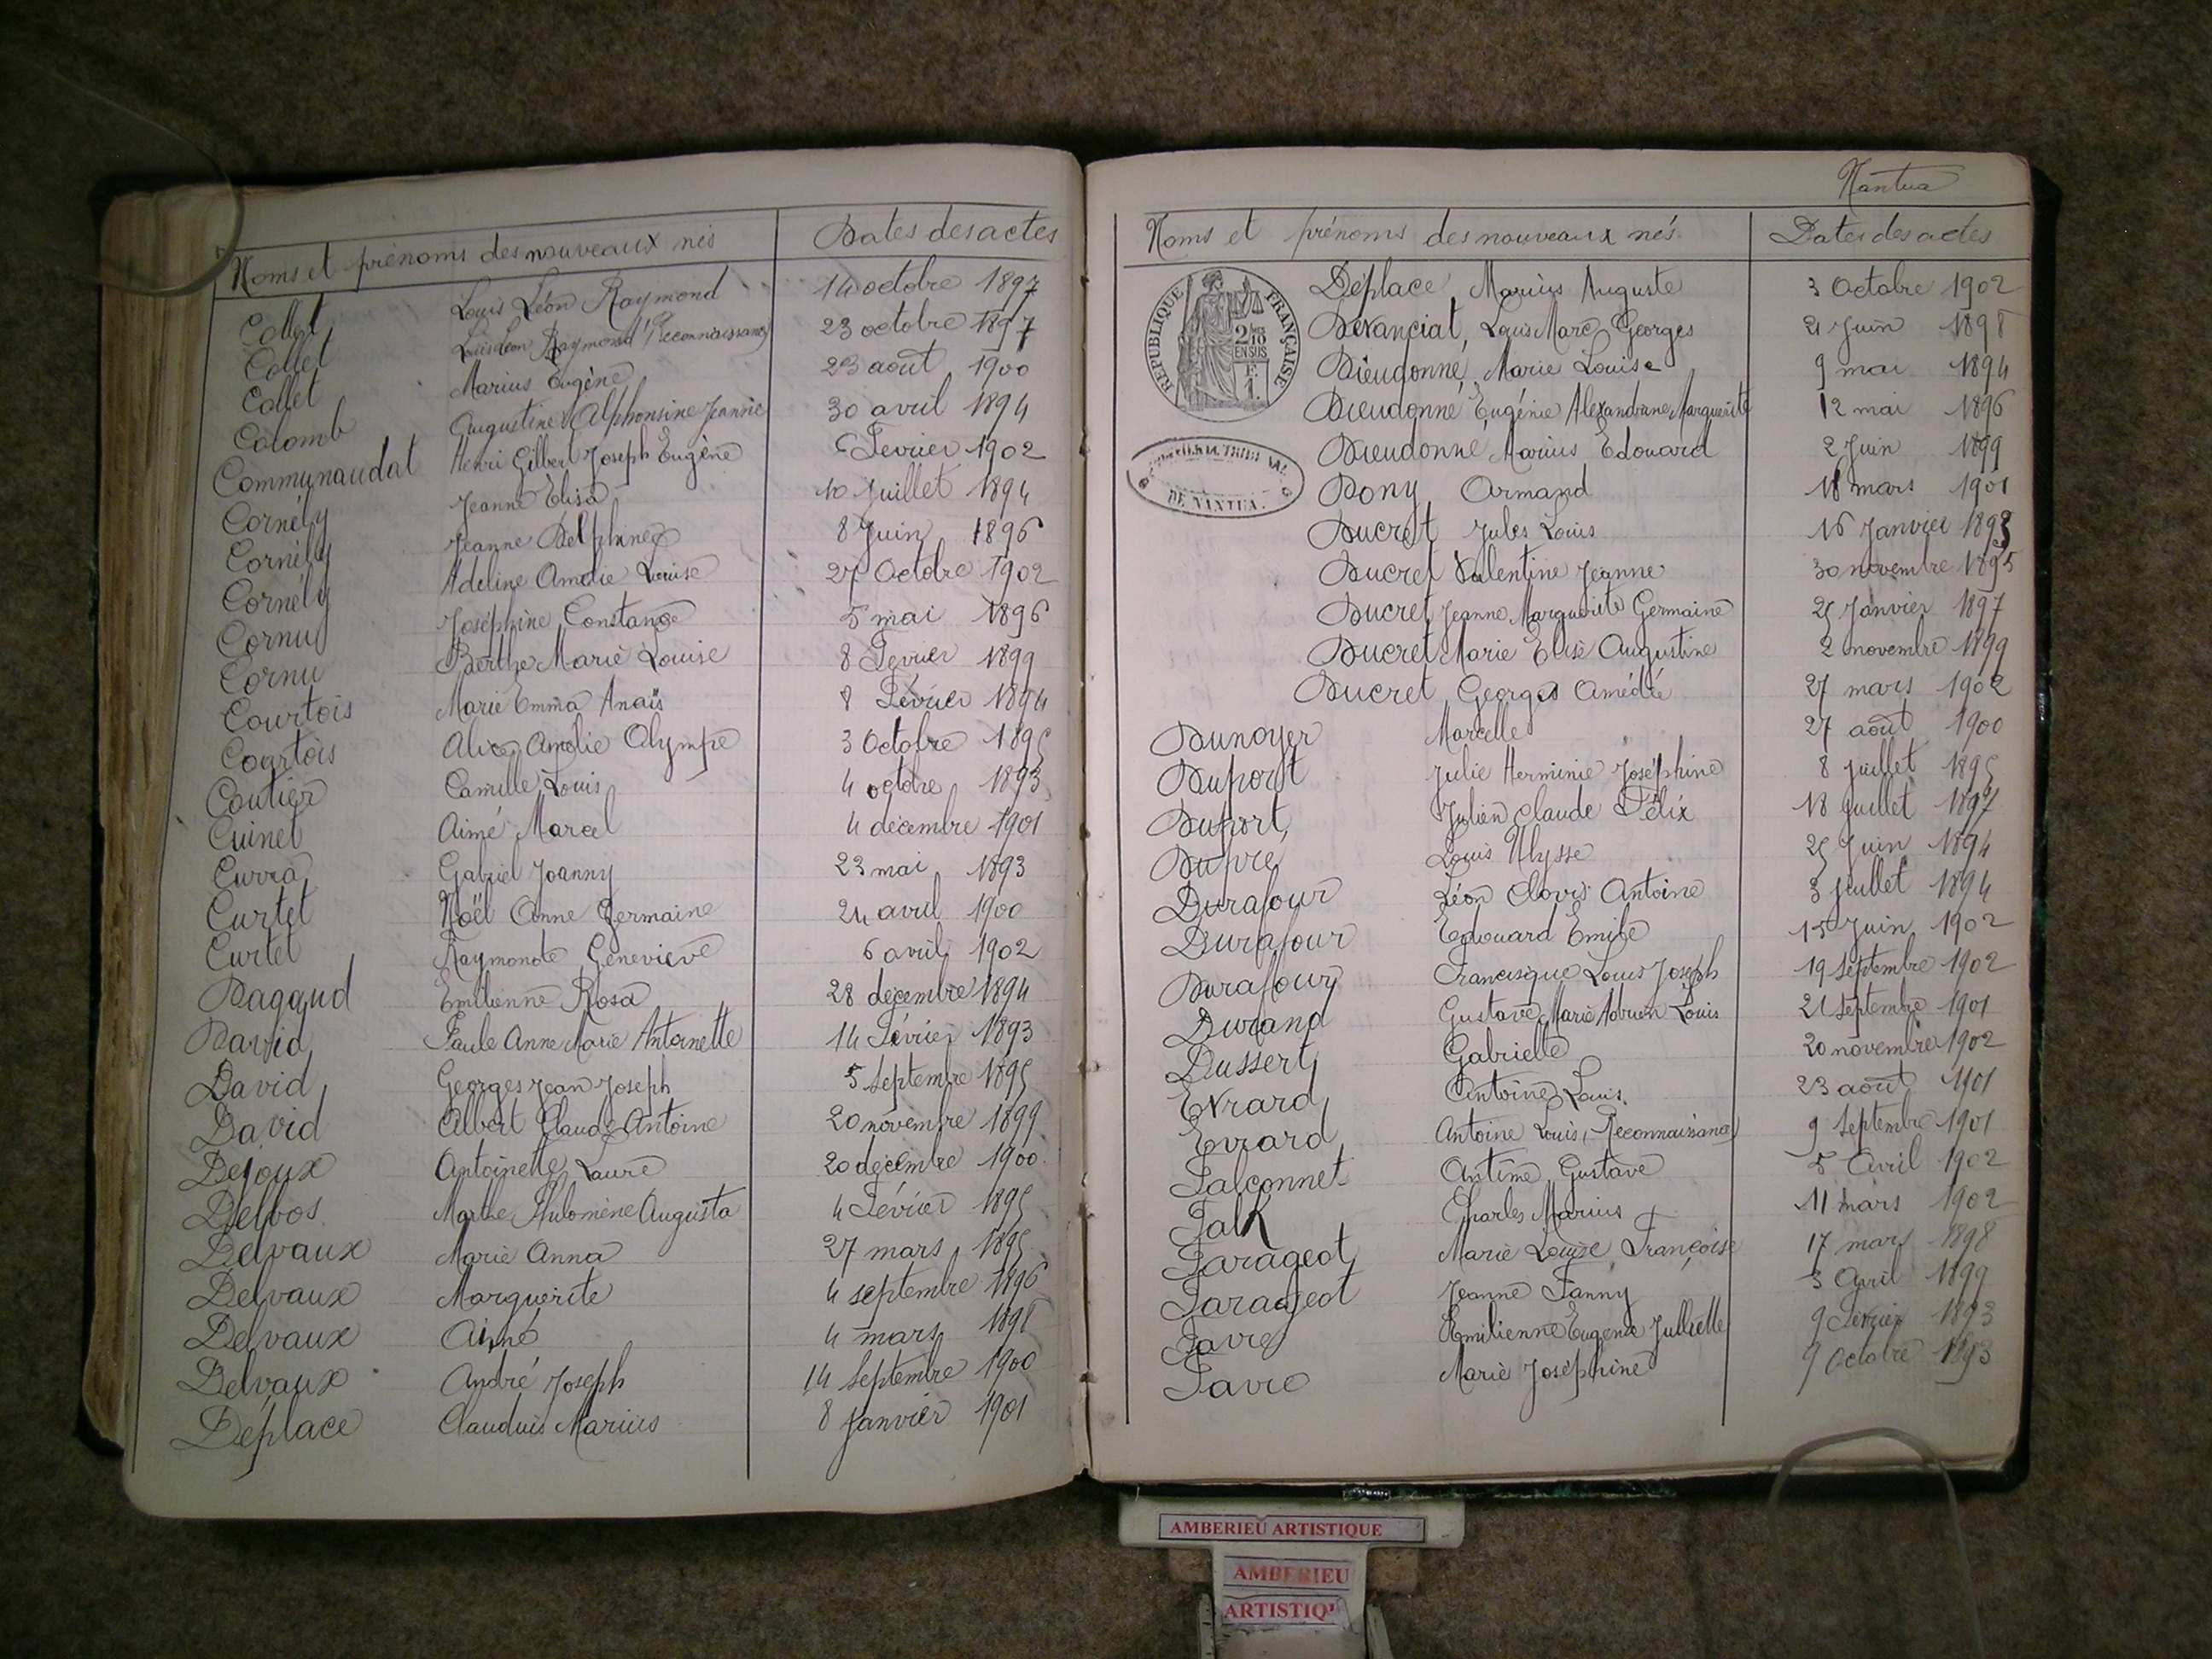 Noms et prénoms des nouveaux nés Dates des actes
Collet Louis Léon Raymond 14 octobre 1897
Collet Louis Léon Raymond (Reconnaissance) 23 octobre 1897
Collet Marius Eugène 23 août 1900
Colomb Augustine Alphonsine Jeanne 30 avril 1894
Communaudat Henri Gilbert Joseph Eugène 6 Fevrier 1902
Cornély Jeanne Elisa 10 Juillet 1894
Cornély Jeanne Delphine 8 Juin 1896
Cornély Adeline Amélie Louise 27 Octobre 1902
Cornu Joséphine Constance 5 mai 1896
Cornu Berthe Marie Louise 8 Fevrier 1899
Courtois Marie Emma Anaïs 8 Février 1894
Courtois Alix Amélie Olympe 3 Octobre 1895
Coutier Camille Louis 4 octobre 1893
Cuinet Aimé Marcel 4 décembre 1901
Curra Gabriel Joanny 23 mai 1893
Curtet Noël Anne Germaine 24 avril 1900
Curtet Raymonde Geneviève 6 avril 1902
Dagaud Emilienne Rosa 28 décembre 1894
David Paule Anne Marie Antoinette 14 Février 1893
David Georges Jean Joseph 5 Septembre 1895
David Albert Claude Antoine 20 novembre 1899
Dejoux Antoinette Laure 20 décembre 1900
Delbos Marthe Philomène Augusta 4 Février 1895
Delvaux Marie Anna 27 mars 1895
Delvaux Marguerite 4 septembre 1896
Delvaux Aimé 4 mars 1898
Delvaux André Joseph 14 Septembre 1900
Déplace Claudius Marius 8 Janvier 1901
Nantua
Noms et prénoms des nouveaux nés Dates des actes
RÉPUBLIQUE FRANÇAISE
2/10 EN SUS
F. 1.
DE NANTUA.
Déplace Marius Auguste 3 Octobre 1902
Devanciat, Louis Marc Georges 21 Juin 1898
Dieudonné Marie Louise 9 mai 1894
Dieudonné Eugénie Alexandrine Marguerite 12 mai 1896
Dieudonné Marius Edouard 2 Juin 1899
Dony Armand 18 mars 1901
Ducret Jules Louis 16 Janvier 1893
Ducret Valentine Jeanne 30 novembre 1895
Ducret Jeanne Marguerite Germaine 25 Janvier 1897
Ducret Marie Elise Augustine 2 novembre 1899
Ducret Georges Amédée 27 mars 1902
Dunoyer Marcelle 27 août 1900
Duport Julie Herminie Joséphine 8 juillet 1895
Duport, Julien Claude Félix 18 juillet 1897
Dupré Louis Ulysse 25 Juin 1894
Durafour Léon Clovis Antoine 3 juillet 1894
Durafour Edouard Emile 15 Juin 1902
Durafour Francisque Louis Joseph 19 Septembre 1902
Durand Gustave Marie Adrien Louis 21 Septembre 1901
Dussert Gabrielle 20 novembre 1902
Evrard Antoine Louis 23 août 1901
Evrard Antoine Louis, (Reconnaissance) 9 Septembre 1901
Falconnet Antime Gustave 5 Avril 1902
Falk Charles Marius 11 mars 1902
Farageot Marie Louise Françoise 17 mars 1898
Farageot Jeanne Fanny 3 Avril 1899
Favre Emilienne Eugénie Julliette 9 Février 1893
Favre Marie Joséphine 9 Octobre 1893
AMBERIEU ARTISTIQUE
AMBERIEU
ARTISTIQU